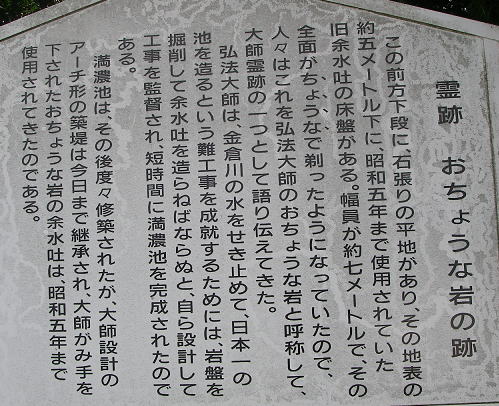 霊跡　おちょうな岩の跡
この前方下段に、石張りの平地があり、その地表の
約五メートル下に、昭和五年まで使用されていた
旧余水吐の床盤がある。幅員が約七メートルで、その
全面がちょうなで剃ったようになっていたので、
人々はこれを弘法大師のおちょうな岩と呼称して、
大師霊跡の一つとして語り伝えてきた。
弘法大師は、金倉川の水をせき止めて、日本一の
池を造るという難工事を成就するためには、岩盤を
掘削して余水吐を造らねばならぬと、自ら設計して
工事を監督され、短時間に満濃池を完成されたので
ある。
満濃池は、その後度々修築されたが、大師設計の
アーチ形の築堤は今日まで継承され、大師がみ手を
下されたおちょうな岩の余水吐は、昭和五年まで
使用されてきたのである。